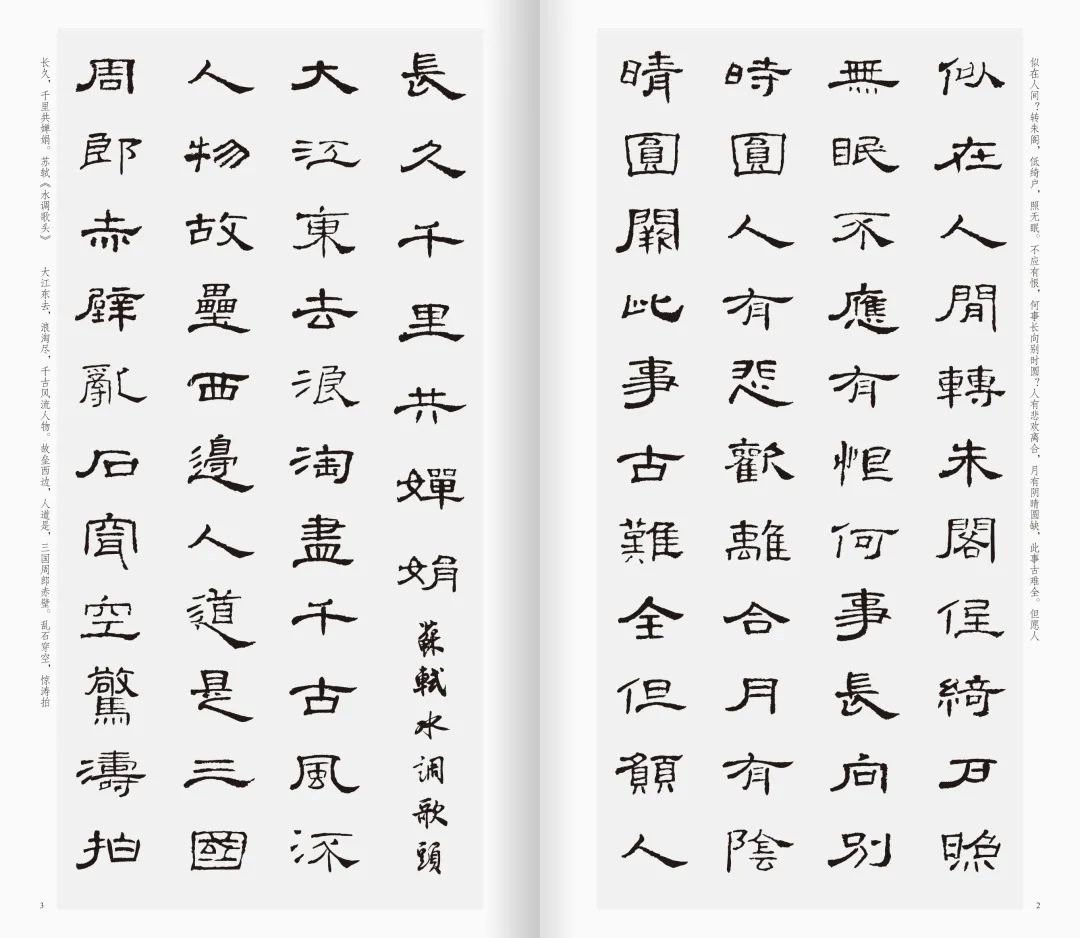 似在人间？转朱阁，低绮户，照无眠。不应有恨，何事长向别时圆？人有悲欢离合，月有阴晴圆缺，此事古难全。但愿人
似在人間轉朱閣低綺戶照
無眠不應有恨何事長向別
時圓人有悲歡離合月有陰
晴圓闕此事古難全但願人
2
長久千里共嬋娟 蘇軾水調歌頭
大江東去浪淘盡千古風流
人物故壘西邊人道是三國
周郎赤壁亂石穿空驚濤拍
长久，千里共婵娟。苏轼《水调歌头》 大江东去，浪淘尽，千古风流人物。故垒西边，人道是，三国周郎赤壁。乱石穿空，惊涛拍
3